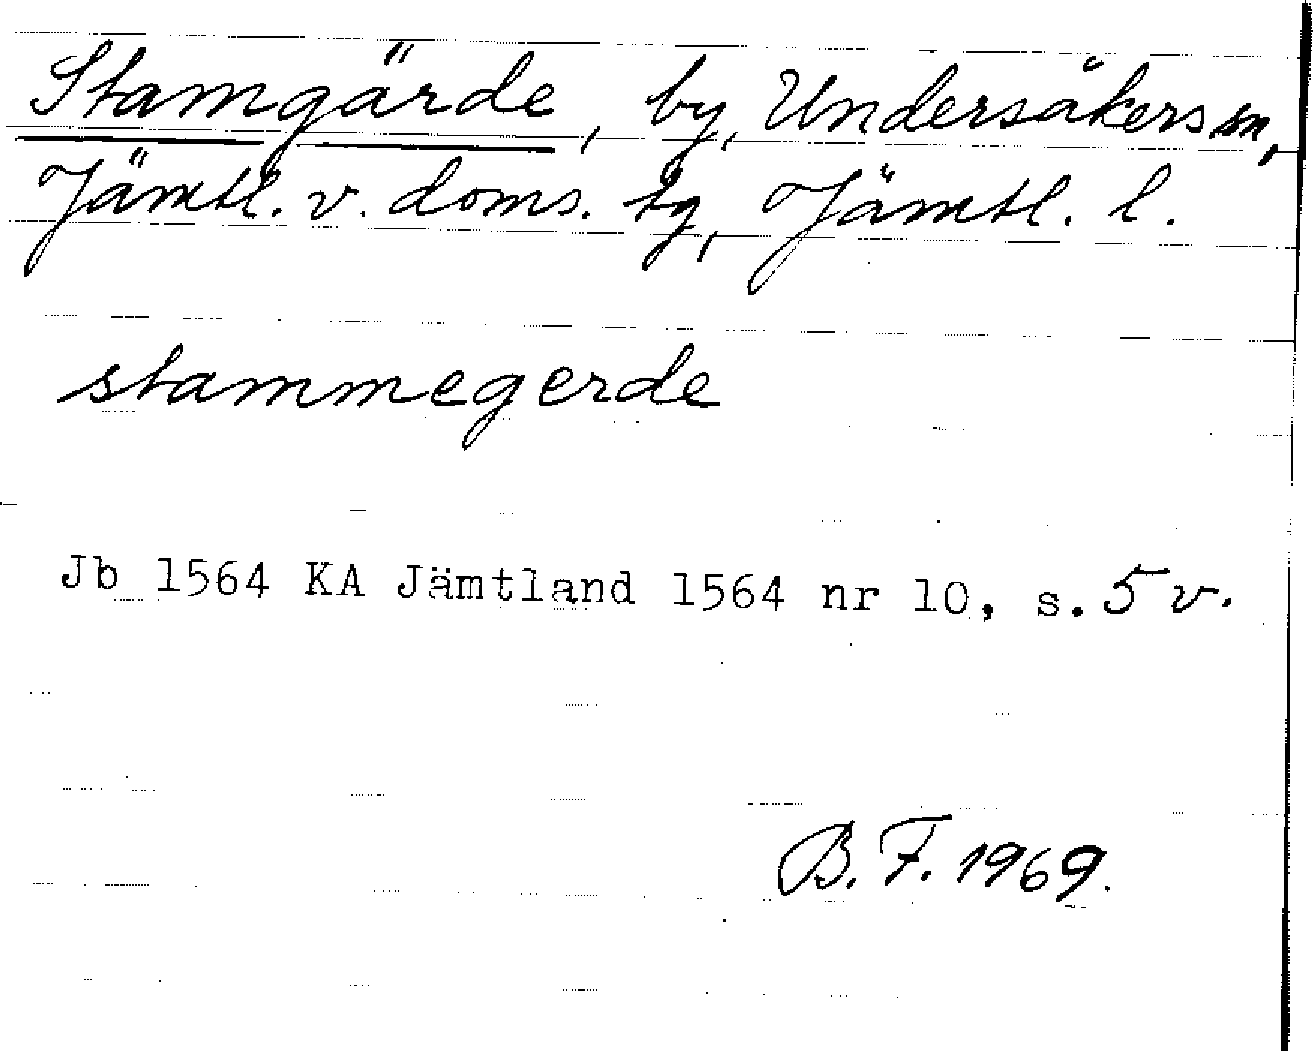 Stamgärde, by, Undersåkers sn,
Jämtl. v. doms. tg, Jämtl. l.
stammegerde
Jb 1564 KA Jämtland 1564 nr 10, s. 5 v.
B. F. 1969.